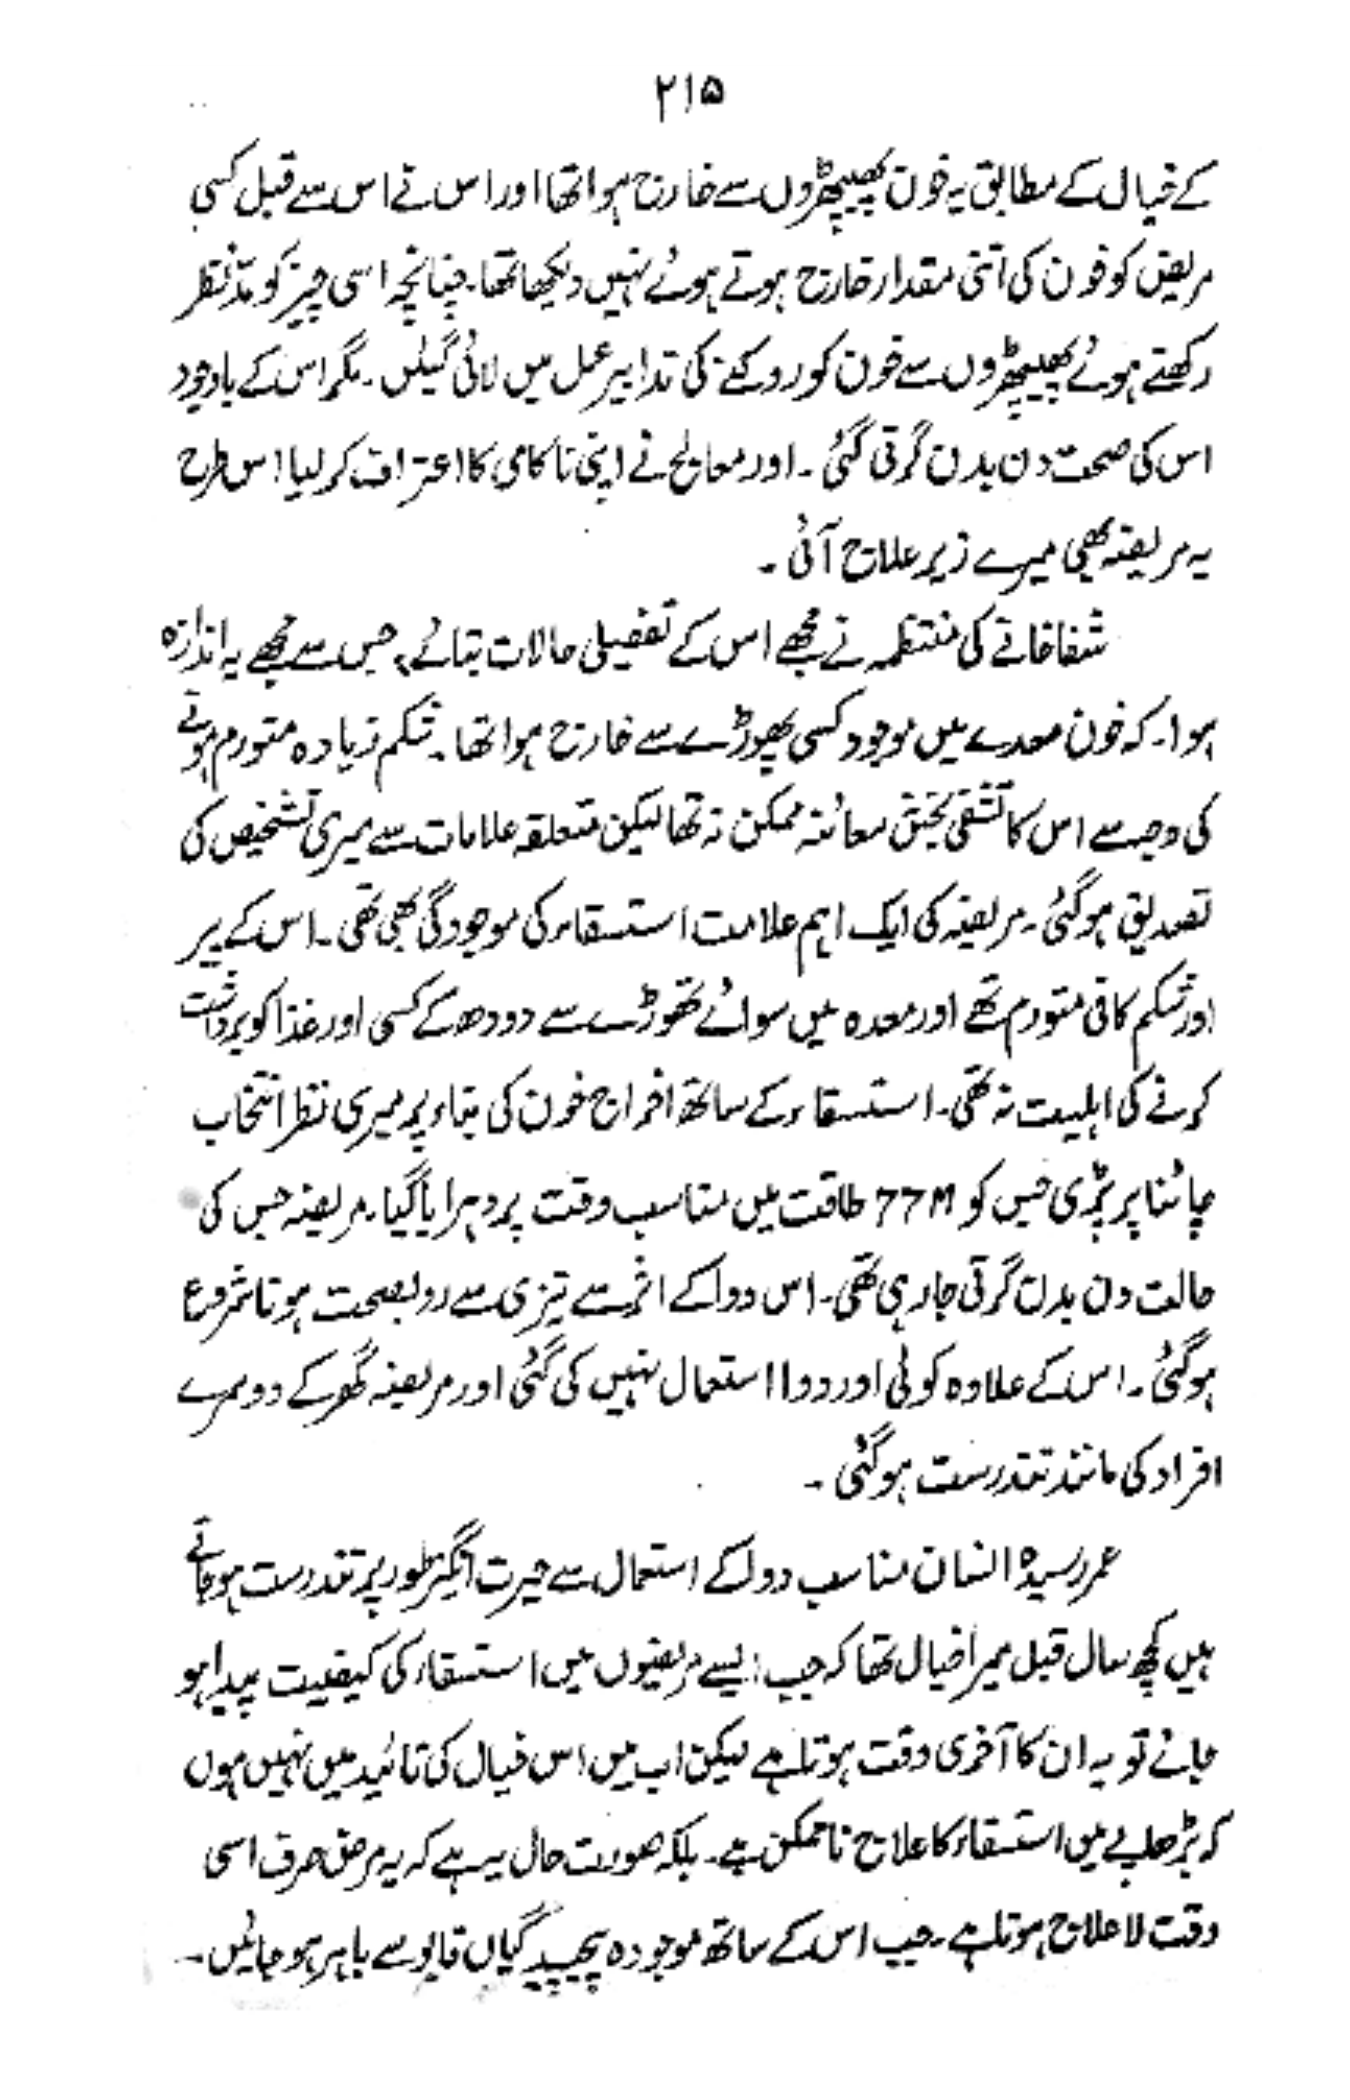 ۲۱۵
کے خیال کے مطابق یہ خون پھیپھڑوں سے خارج ہوا تھا اور اس نے اس سے قبل کسی
مریض کو خون کی اتنی مقدار خارج ہوتے ہوئے نہیں دیکھا تھا۔ چنانچہ اسی چیز کو مدّنظر
رکھتے ہوئے پھیپھڑوں سے خون کو روکنے کی تدابیر عمل میں لائی گیئں۔ مگر اس کے باوجود
اس کی صحت دن بدن گرتی گئی۔ اور معالج نے اپنی ناکامی کا اعتراف کر لیا اس طرح
یہ مریضہ بھی میرے زیر علاج آئی۔
شفاخانے کی منتظمہ نے مجھے اس کے تفصیلی حالات بتائے، جس سے مجھے یہ اندازہ
ہوا۔ کہ خون معدے میں موجود کسی پھوڑے سے خارج ہوا تھا۔ شکم زیادہ متورم ہونے
کی وجہ سے اس کا تشفی بخش معائنہ ممکن نہ تھا لیکن متعلقہ علامات سے میری تشخیص کی
تصدیق ہو گئی۔ مریضہ کی ایک اہم علامت استسقاء کی موجودگی بھی تھی۔ اس کے پیر
اور شکم کافی متورم تھے اور معدہ میں سوائے تھوڑے سے دودھ کے کسی اور غذا کو برداشت
کرنے کی اہلیت نہ تھی۔ استسقاء کے ساتھ اخراج خون کی بناء پر میری نظر انتخاب
چائنا پر پڑی جس کو 77M طاقت میں مناسب وقت پر دہرایا گیا۔ مریضہ جس کی
حالت دن بدن گرتی جا رہی تھی۔ اس دوا کے اثر سے تیزی سے رو بصحت ہونا شروع
ہو گئی۔ اس کے علاوہ کوئی اور دوا استعمال نہیں کی گئی اور مریضہ گھر کے دوسرے
افراد کی مانند تندرست ہو گئی۔
عمر رسیدہ انسان مناسب دوا کے استعمال سے حیرت انگیز طور پر تندرست ہو جاتے
ہیں کچھ سال قبل میرا خیال تھا کہ جب ایسے مریضوں میں استسقاء کی کیفیت پیدا ہو
جائے تو یہ ان کا آخری وقت ہوتا ہے لیکن اب میں اس خیال کی تائید میں نہیں ہوں
کہ بڑھاپے میں استسقاء کا علاج ناممکن ہے۔ بلکہ صورت حال یہ ہے کہ یہ مرض صرف اسی
وقت لا علاج ہوتا ہے۔ جب اس کے ساتھ موجودہ پیچیدگیاں قابو سے باہر ہو جائیں۔